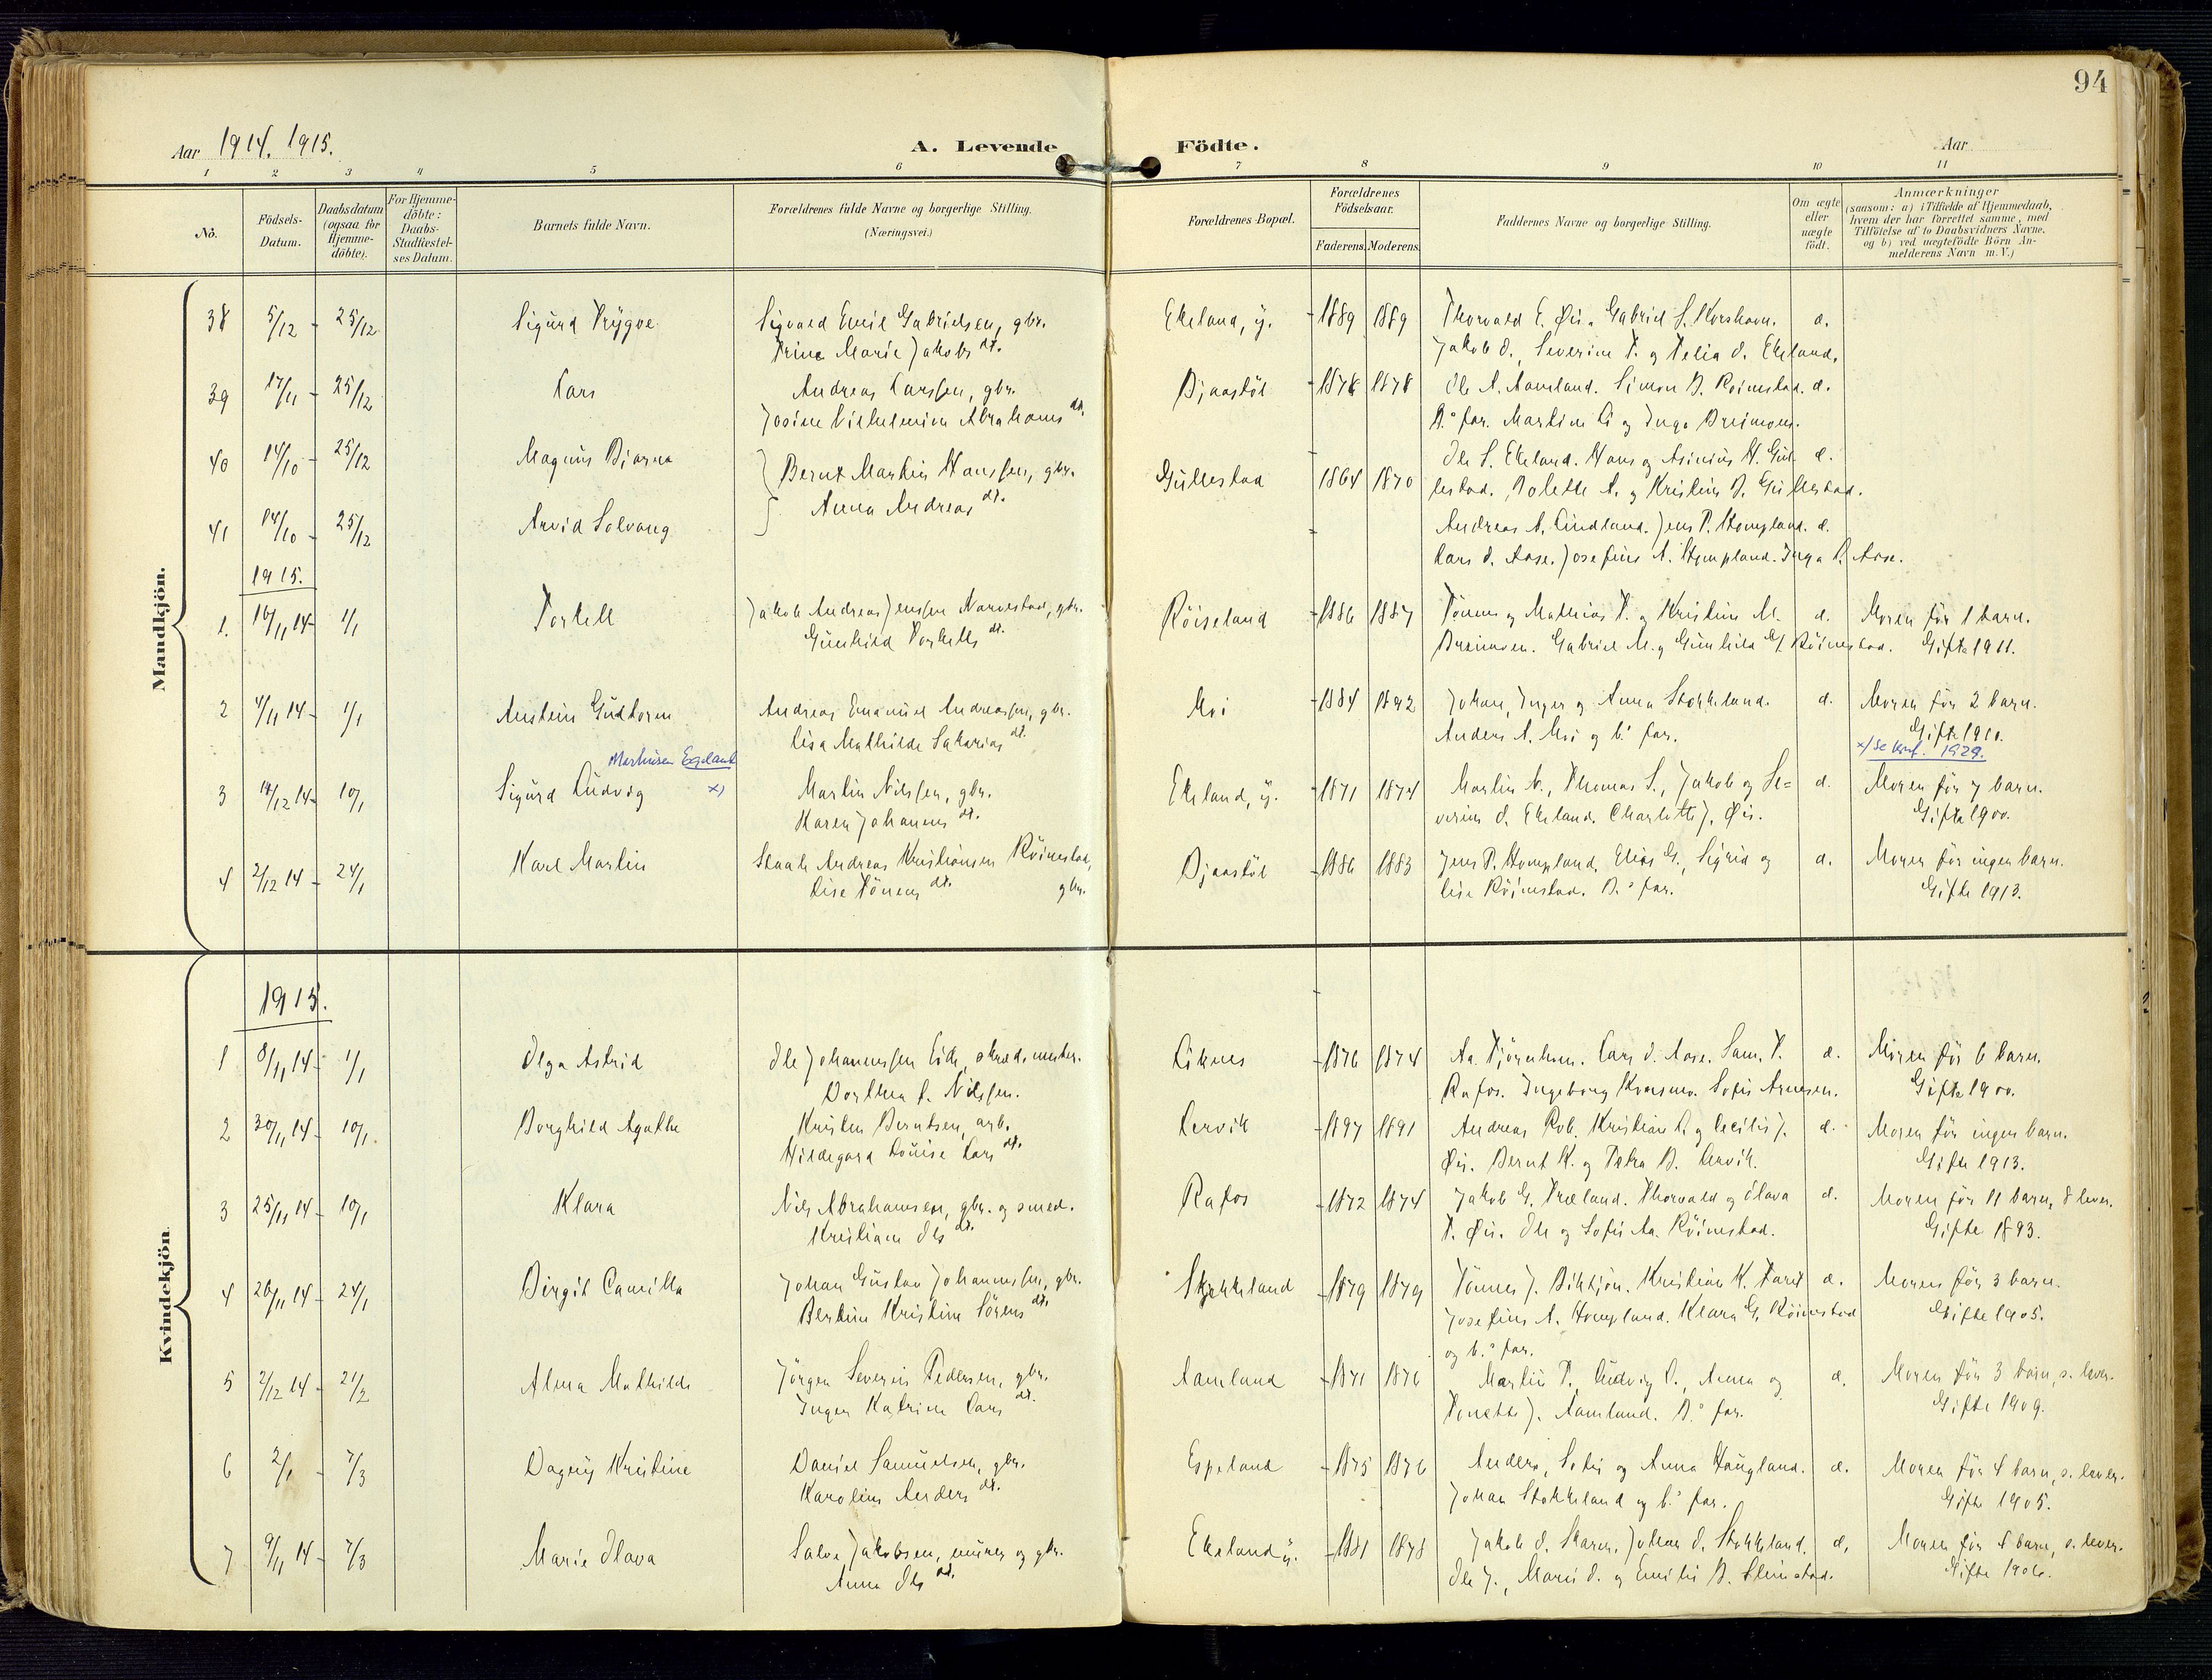 94
Aar 1914. 1915.
A. Levende Födte.
Aar
1 2 3 4 5 6 7 8 9 10 11
No.
Födsels-Datum.
Daabsdatum (ogsaa for Hjemme-döbte).
For Hjemme-döbte: Daabs-Stadfæstel-ses Datum.
Barnets fulde Navn.
Forældrenes fulde Navne og borgerlige Stilling. (Næringsvei.)
Forældrenes Bopæl.
Forældrenes Födselsaar.
Faderens. Moderens.
Faddernes Navne og borgerlige Stilling.
Om ægte eller uægte födt.
Anmærkninger (saasom: a) i Tilfælde af Hjemmedaab, hvem der har forrettet samme, med Tilföielse af to Daabsvidners Navne, og b) ved uægtefödte Börn An-melderens Navn m. V.)
Mandkjön.
38 5/12 - 25/12 Sigurd Trygve Sigvald Emil Gabrielsen, gbr. Ekeland, y. 1889 1889 Thorvald E. Øie. Gabriel S. Korshavn. æ.
Trine Marie Jakobs dt. Jakob O., Severine T. og Telia O. Ekeland.
39 17/11 - 25/12 Lars Andreas Larssen, gbr. Bjaastöl 1878 1878 Ole A. Aamland. Simon B. Röinestad. æ.
Josine Vilhelmine Abrahams dt. B.s far. Martine L. og Inga Breimoen.
40 14/10 - 25/12 Magnus Bjarne Bernt Martin Hanssen, gbr. Gullestad 1864 1870 Ole S. Ekeland. Hans og Asinius H. Gul- æ.
Anna Andreas dt. lestad. Bolette A. og Kristine B. Gullestad.
41 14/10 - 25/12 Arvid Solvang Andreas A. Lindland. Jens P. Hompland. æ.
Lars O. Aase. Josefine A. Hompland. Inga B. Aase.
1915.
1. 16/11 14 - 1/1 Torkell Jakob Andreas Jenssen Narvestad, gbr. Röiseland 1886 1887 Tönnes og Mathias T. og Kristine M. æ. Moren för 1 barn.
Gunhild Torkells dt. Breimoen. Gabriel M. og Gunhild G. Röinestad. Gifte 1911.
2 4/11 14 - 1/1 Austein Gudtorm Andreas Emanuel Andreassen, gbr. Moi 1884 1892 Johan, Inger og Anna Stokkeland. æ. Moren för 2 barn.
Lisa Mathilde Sakarias dt. Anders A. Moi og b.s far. Gifte 1910.
Martinsen Egeland x/ se konf. 1929.
3 14/12 14 - 10/1 Sigurd Ludvig x) Martin Nilssen, gbr. Ekeland, y. 1871 1874 Martin N., Thomas S., Jakob og Se= æ. Moren för 7 barn.
Karen Johannes dt. verine O. Ekeland. Charlotte J. Øie. Gifte 1900.
4 2/12 14 - 24/1 Karl Martin Staale Andreas Kristiansen Röinestad, Bjaastöl 1886 1883 Jens P. Hompland, Elias G., Sigrid og æ. Moren för ingen barn.
Lise Tönnes dt. gbr. Lise Röinestad. B.s far. Gifte 1913.
Kvindekjön
1915.
1 8/11 14 - 1/1 Olga Astrid Ole Johannessen Eide, skræd.mester. Liknes 1876 1874 Aa. Tjörnhom. Lars O. Aase. Sam. T. æ. Moren för 6 barn.
Dorthea S. Nilssen. Rafos. Ingeborg Kvarsmo. Sofie Arnesen. Gifte 1900.
2 30/11 14 - 10/1. Borghild Agathe Kristen Berntsen, arb. Lervik 1897 1891 Andreas Rob. Kristian L. og Cecilie J. æ. Moren för ingen barn.
Hildegard Louise Lars dt. Øie. Bernt K. og Petra B. Lervik. Gifte 1913.
3 25/11 14 - 10/1 Klara Nils Abrahamsen, gbr. og smed. Rafos 1872 1874 Jakob G. Træland. Thorvald og Olava æ. Moren för 11 barn, 8 lever.
Kristiane Ols dt. T. Øie. Ole og Sofie Aa. Röinestad. Gifte 1893.
4 26/11 14 - 24/1 Birgit Camilla Johan Gustav Johannessen, gbr. Stokkeland 1879 1879 Tönnes J. Biktjön. Kristian K. æ. Moren för 3 barn.
Bertine Kristine Sörens dt. Josefine A. Hompland. Klara G. Röinestad Gifte 1905.
og b.s far.
5 2/12 14 - 21/2 Alma Mathilde Jörgen Severin Pedersen, gbr. Aamland 1871 1876 Martin P., Ludvig O., Anna og æ. Moren för 3 barn, s. lever.
Inger Katrine Lars dt. Tonette J. Aamland. B.s far. Gifte 1909.
6 2/1 - 7/3 Dagny Kristine Daniel Samuelsen, gbr. Espeland 1875 1876 Anders, Sofie og Anna Haugland. æ. Moren för 4 barn, s. lever.
Karoline Anders dt. Johan Stokkeland og b.s far. Gifte 1905.
7 9/11 14 - 7/3 Marie Olava Salve Jakobsen, murer og gbr. Ekeland y. 1881 1878 Jakob O. Skaren. Johan O. Stokkeland. æ. Moren för 4 barn, s. lever.
Anna Ols dt. Ole J., Marie O. og Emilie B. Gifte 1906.